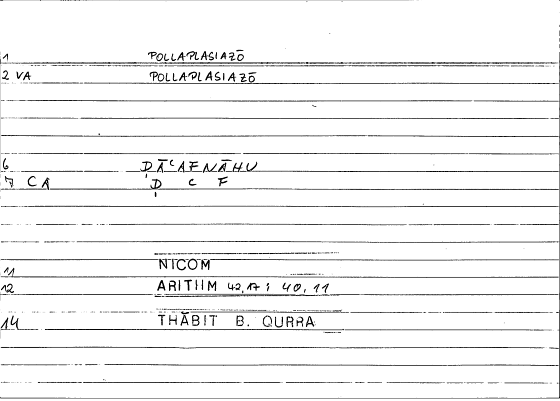 1 POLLAPLASIAZŌ
2 VA POLLAPLASIAZŌ
6 ḌĀʿAFNĀHU
7 CA Ḍ ʿ F
11 NICOM
12 ARITHM 42,17; 40,11
14 THĀBIT B. QURRA